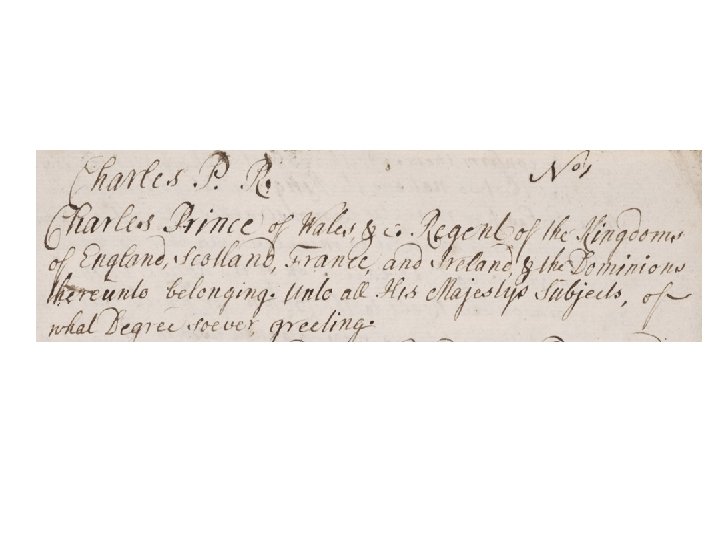 Charles P. R. No 1
Charles Prince of Wales &c. Regent of the Kingdoms
of England, Scotland, France, and Ireland, & the Dominions
thereunto belonging. Unto all His Majestys Subjects, of
what Degree soever, greeting.